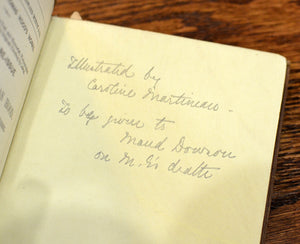 Illustrated by
Caroline Martineau -
To be given to
Maud Dowson
on M. E's death